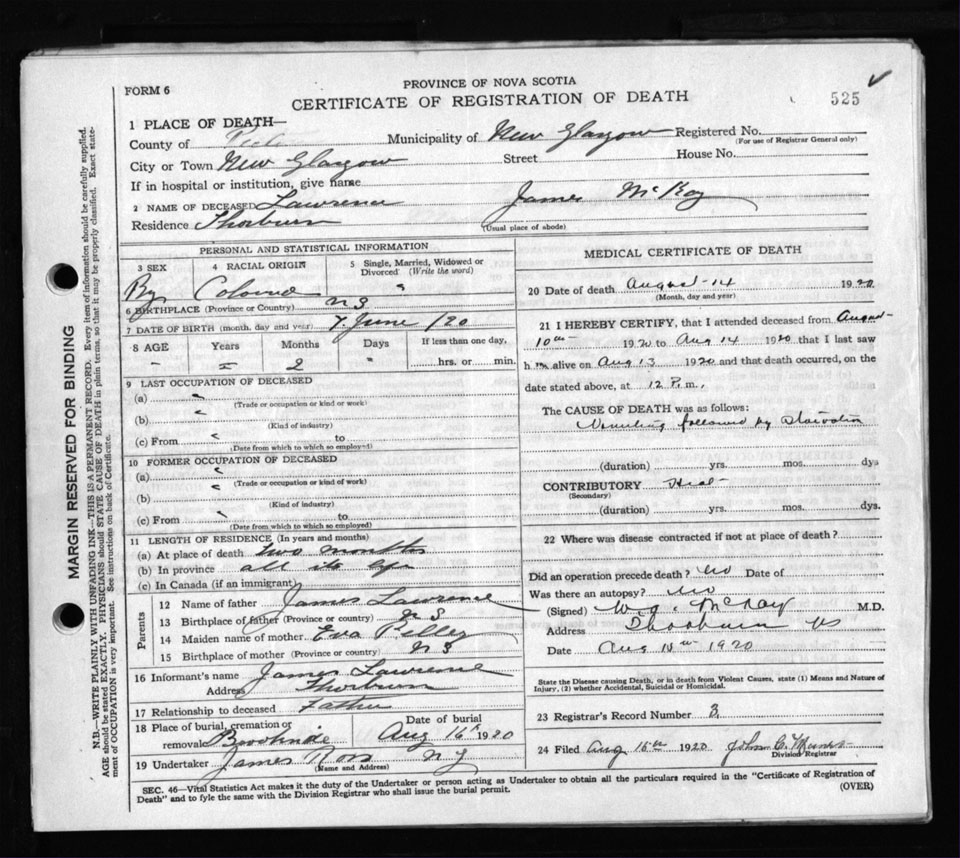 FORM 6
PROVINCE OF NOVA SCOTIA
CERTIFICATE OF REGISTRATION OF DEATH
525
1 PLACE OF DEATH—
County of
Municipality of New Glasgow Registered No.
(For use of Registrar General only)
City or Town New Glasgow Street House No.
If in hospital or institution, give name
2 NAME OF DECEASED Lawrence James McKay
Residence Thorburn (Usual place of abode)
PERSONAL AND STATISTICAL INFORMATION
3 SEX 4 RACIAL ORIGIN 5 Single, Married, Widowed or Divorced (Write the word)
Boy Colored
6 BIRTHPLACE (Province or Country) N S
7 DATE OF BIRTH (month, day and year) 7 June /20
8 AGE Years Months Days If less than one day,
2 hrs. or min.
9 LAST OCCUPATION OF DECEASED
(a)
(Trade or occupation or kind of work)
(b)
(Kind of industry)
(c) From to
(Date from which to which so employed)
10 FORMER OCCUPATION OF DECEASED
(a)
(Trade or occupation or kind of work)
(b)
(Kind of industry)
(c) From to
(Date from which to which so employed)
11 LENGTH OF RESIDENCE (In years and months)
(a) At place of death two months
(b) In province all its life
(c) In Canada (if an immigrant)
Parents
12 Name of father James Lawrence
13 Birthplace of father (Province or country) N S
14 Maiden name of mother Eva
15 Birthplace of mother (Province or country) N S
16 Informant's name James Lawrence
Address Thorburn
17 Relationship to deceased Father
18 Place of burial, cremation or removal Date of burial
Aug 16 1920
19 Undertaker James Ross
(Name and Address)
MEDICAL CERTIFICATE OF DEATH
20 Date of death August 14 1920
(Month, day and year)
21 I HEREBY CERTIFY, that I attended deceased from August
10th 1920 to Aug 14 1920 that I last saw
h im alive on Aug 13 1920 and that death occurred, on the
date stated above, at 12 P. m.,
The CAUSE OF DEATH was as follows:
Vomiting followed by Starvation
(duration) yrs. mos. dys
CONTRIBUTORY Heat
(Secondary)
(duration) yrs. mos. dys.
22 Where was disease contracted if not at place of death?
Did an operation precede death? no Date of
Was there an autopsy? no
(Signed) W. J. McKay M.D.
Address Thorburn NS
Date Aug 1920
State the Disease causing Death, or in death from Violent Causes, state (1) Means and Nature of
Injury, (2) whether Accidental, Suicidal or Homicidal.
23 Registrar's Record Number 3
24 Filed Aug 16th 1920 John C. Munro
Division Registrar
SEC. 46—Vital Statistics Act makes it the duty of the Undertaker or person acting as Undertaker to obtain all the particulars required in the "Certificate of Registration of
Death" and to fyle the same with the Division Registrar who shall issue the burial permit. (OVER)
MARGIN RESERVED FOR BINDING
N.B.—WRITE PLAINLY WITH UNFADING INK—THIS IS A PERMANENT RECORD. Every item of information should be carefully supplied.
AGE should be stated EXACTLY. PHYSICIANS should STATE CAUSE OF DEATH in plain terms, so that it may be properly classified. Exact state-
ment of OCCUPATION is very important. See instructions on back of Certificate.